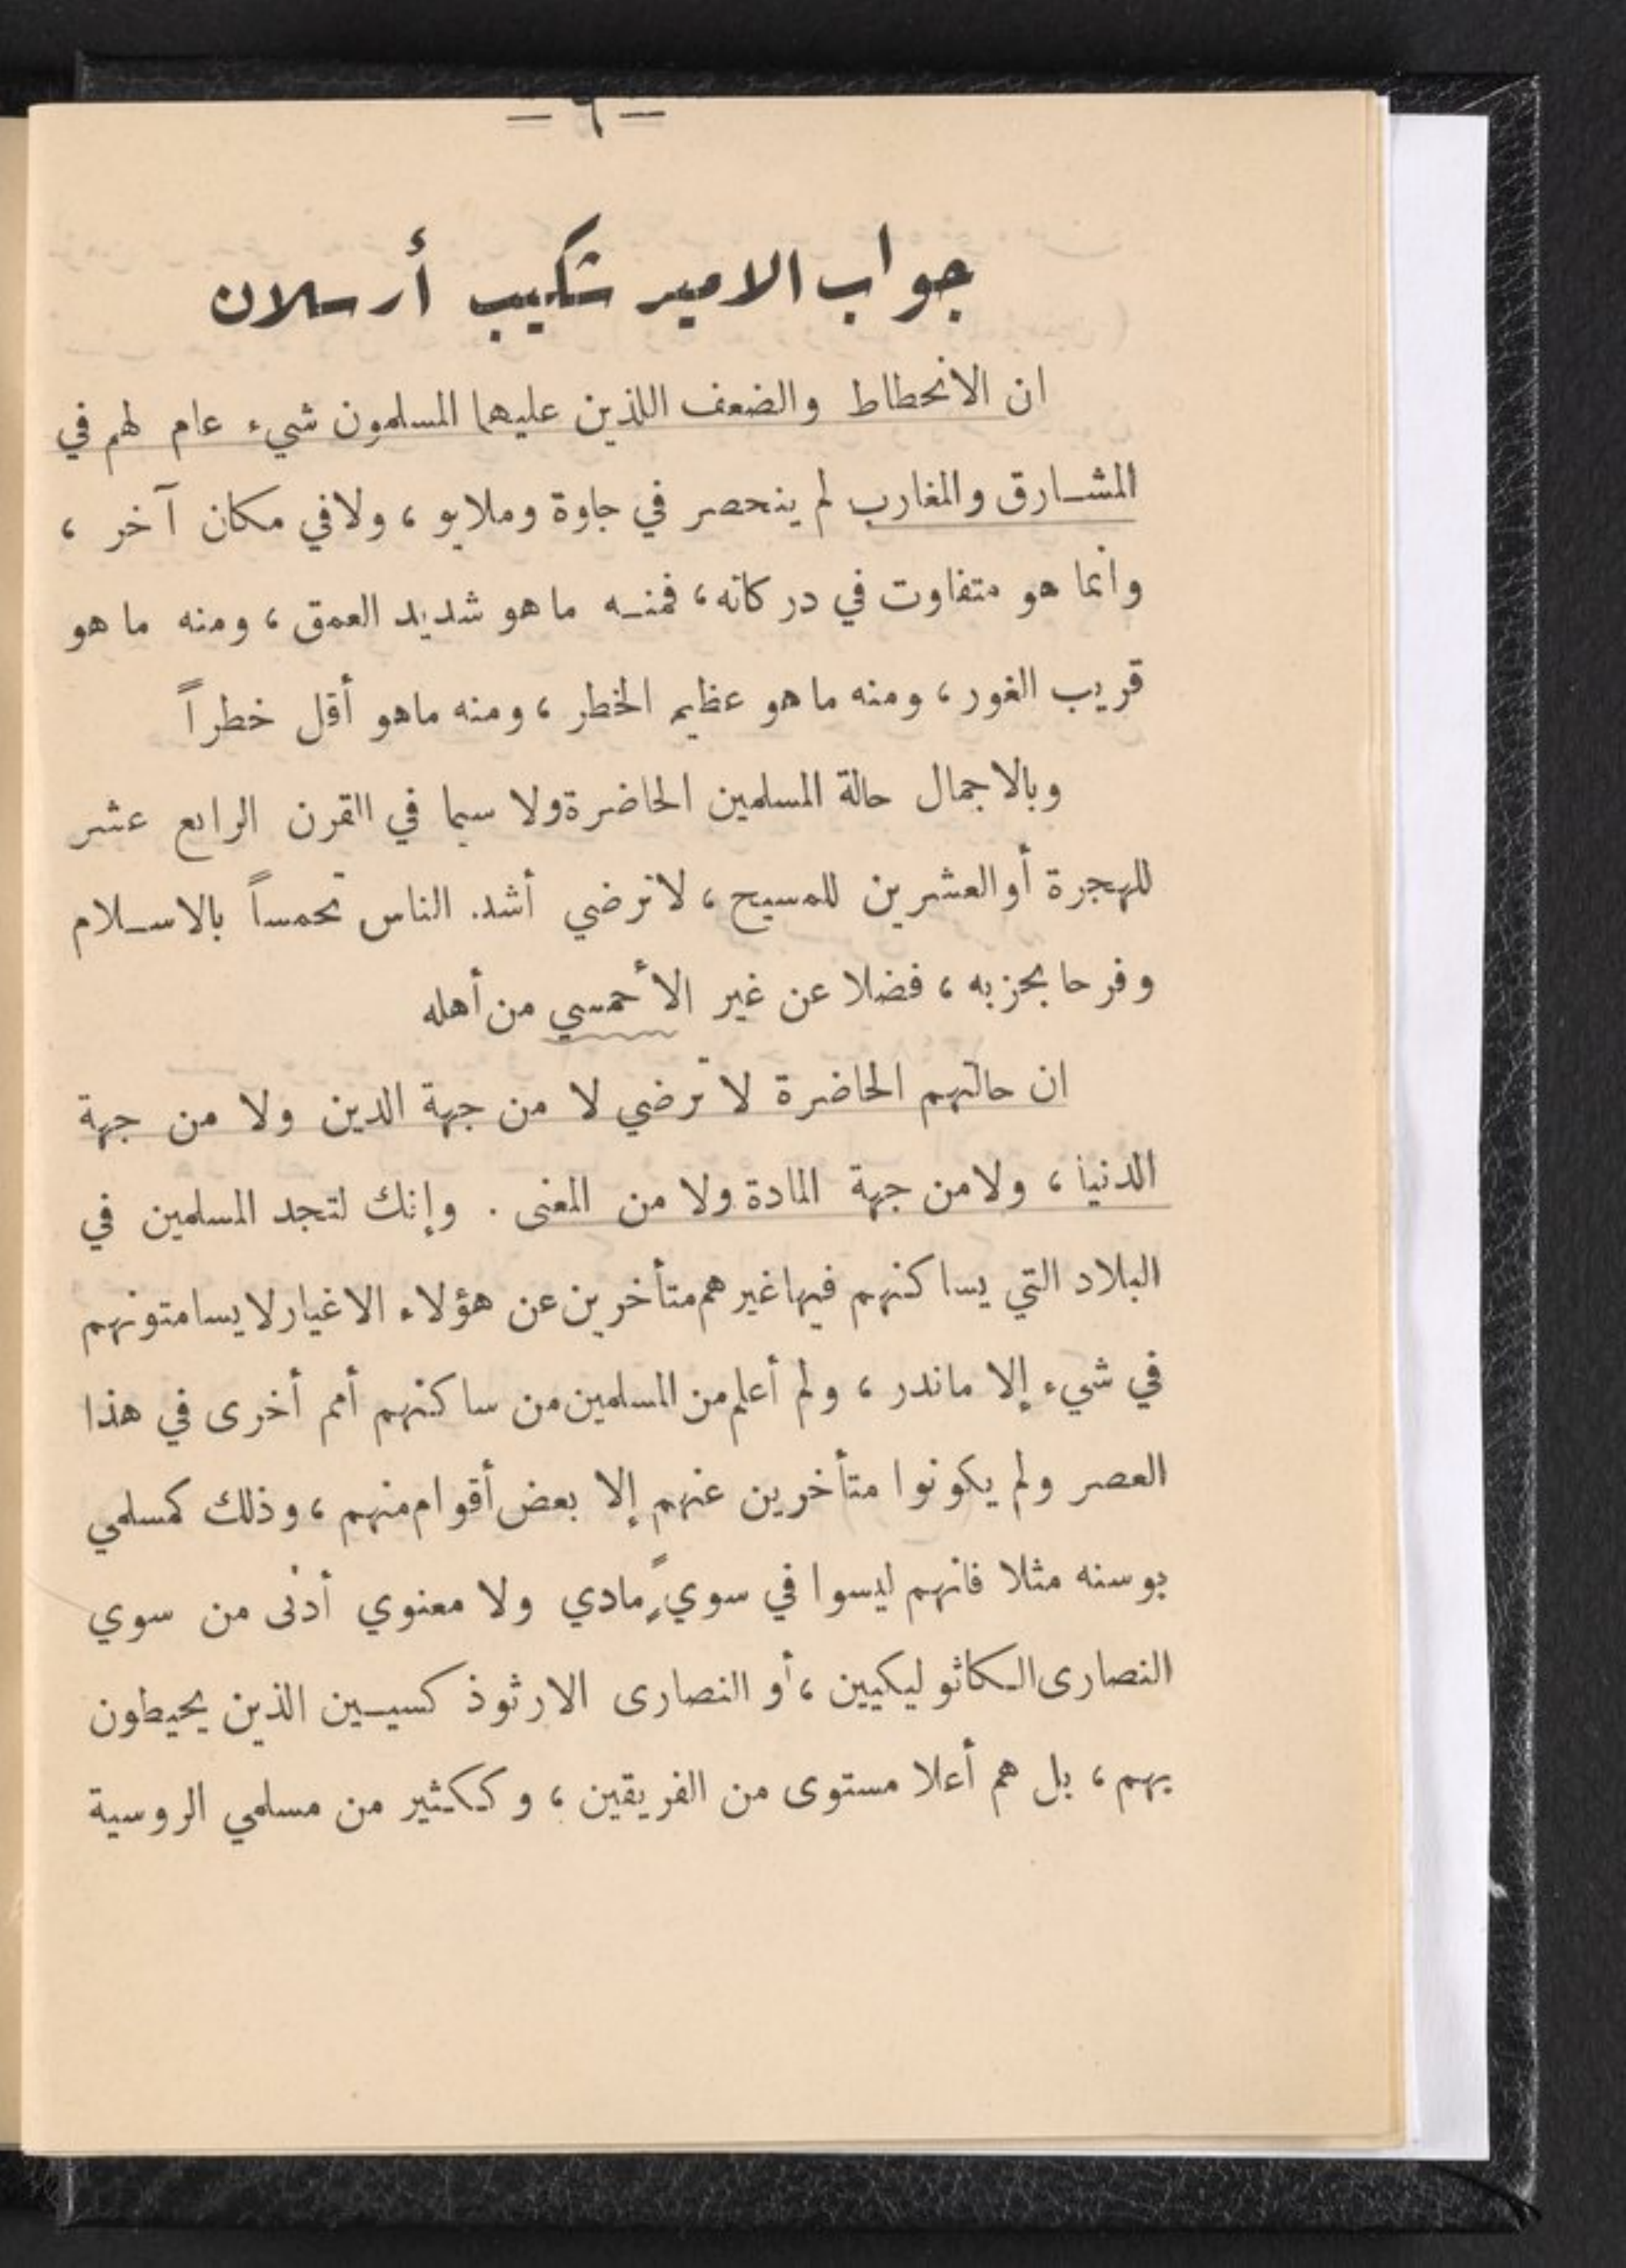 — ٦ —
جواب الامير شكيب أرسلان
ان الانحطاط والضعف اللذين عليهما المسلمون شيء عام لهم في
المشارق والمغارب لم ينحصر في جاوة وملايو ، ولا في مكان آخر ،
وانما هو متفاوت في دركاته ، فمنه ما هو شديد العمق ، ومنه ما هو
قريب الغور ، ومنه ما هو عظيم الخطر ، ومنه ماهو أقل خطراً
وبالاجمال حالة المسلمين الحاضرة ولا سيما في القرن الرابع عشر
للهجرة أو العشرين للمسيح ، لاترضي أشد الناس تحمساً بالاسلام
وفرحا بحزبه ، فضلا عن غير الأحمسي من أهله
ان حالتهم الحاضرة لا ترضي لا من جهة الدين ولا من جهة
الدنيا ، ولا من جهة المادة ولا من المعنى . وإنك لتجد المسلمين في
البلاد التي يساكنهم فيها غيرهم متأخرين عن هؤلاء الاغيار لا يسامتونهم
في شيء إلا ماندر ، ولم أعلم من المسلمين من ساكنهم أمم أخرى في هذا
العصر ولم يكونوا متأخرين عنهم إلا بعض أقوام منهم ، وذلك كمسلمي
بوسنه مثلا فانهم ليسوا في سويٍّ مادي ولا معنوي أدنى من سوي
النصارى الكاثوليكيين ، أو النصارى الارثوذكسيين الذين يحيطون
بهم ، بل هم أعلا مستوى من الفريقين ، وككثير من مسلمي الروسية